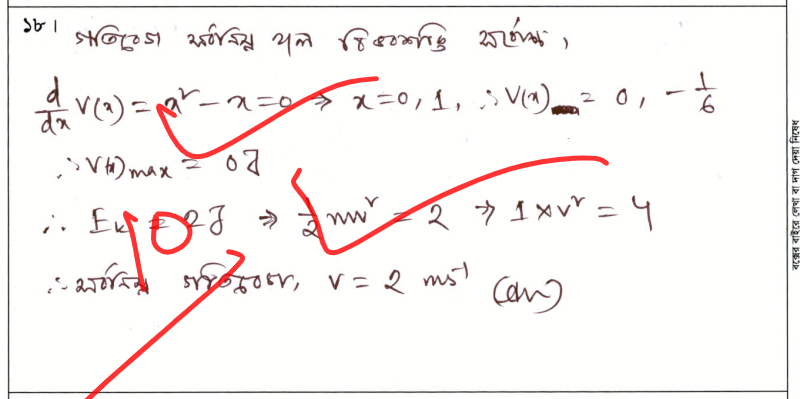 ১৮। গতিবেগ সর্বনিম্ন হলে বিভবশক্তি সর্বোচ্চ,
d/dx V(x) = x² - x = 0 ⇒ x = 0, 1, ∴ V(x) = 0, -1/6
∴ V(x) max = 0 J
∴ Ek = 2J ⇒ 1/2 mv² = 2 ⇒ 1 × v² = 4
∴ সর্বনিম্ন গতিবেগ, v = 2 ms⁻¹ (Ans)
10
বক্সের বাইরে লেখা বা দাগ দেয়া নিষেধ